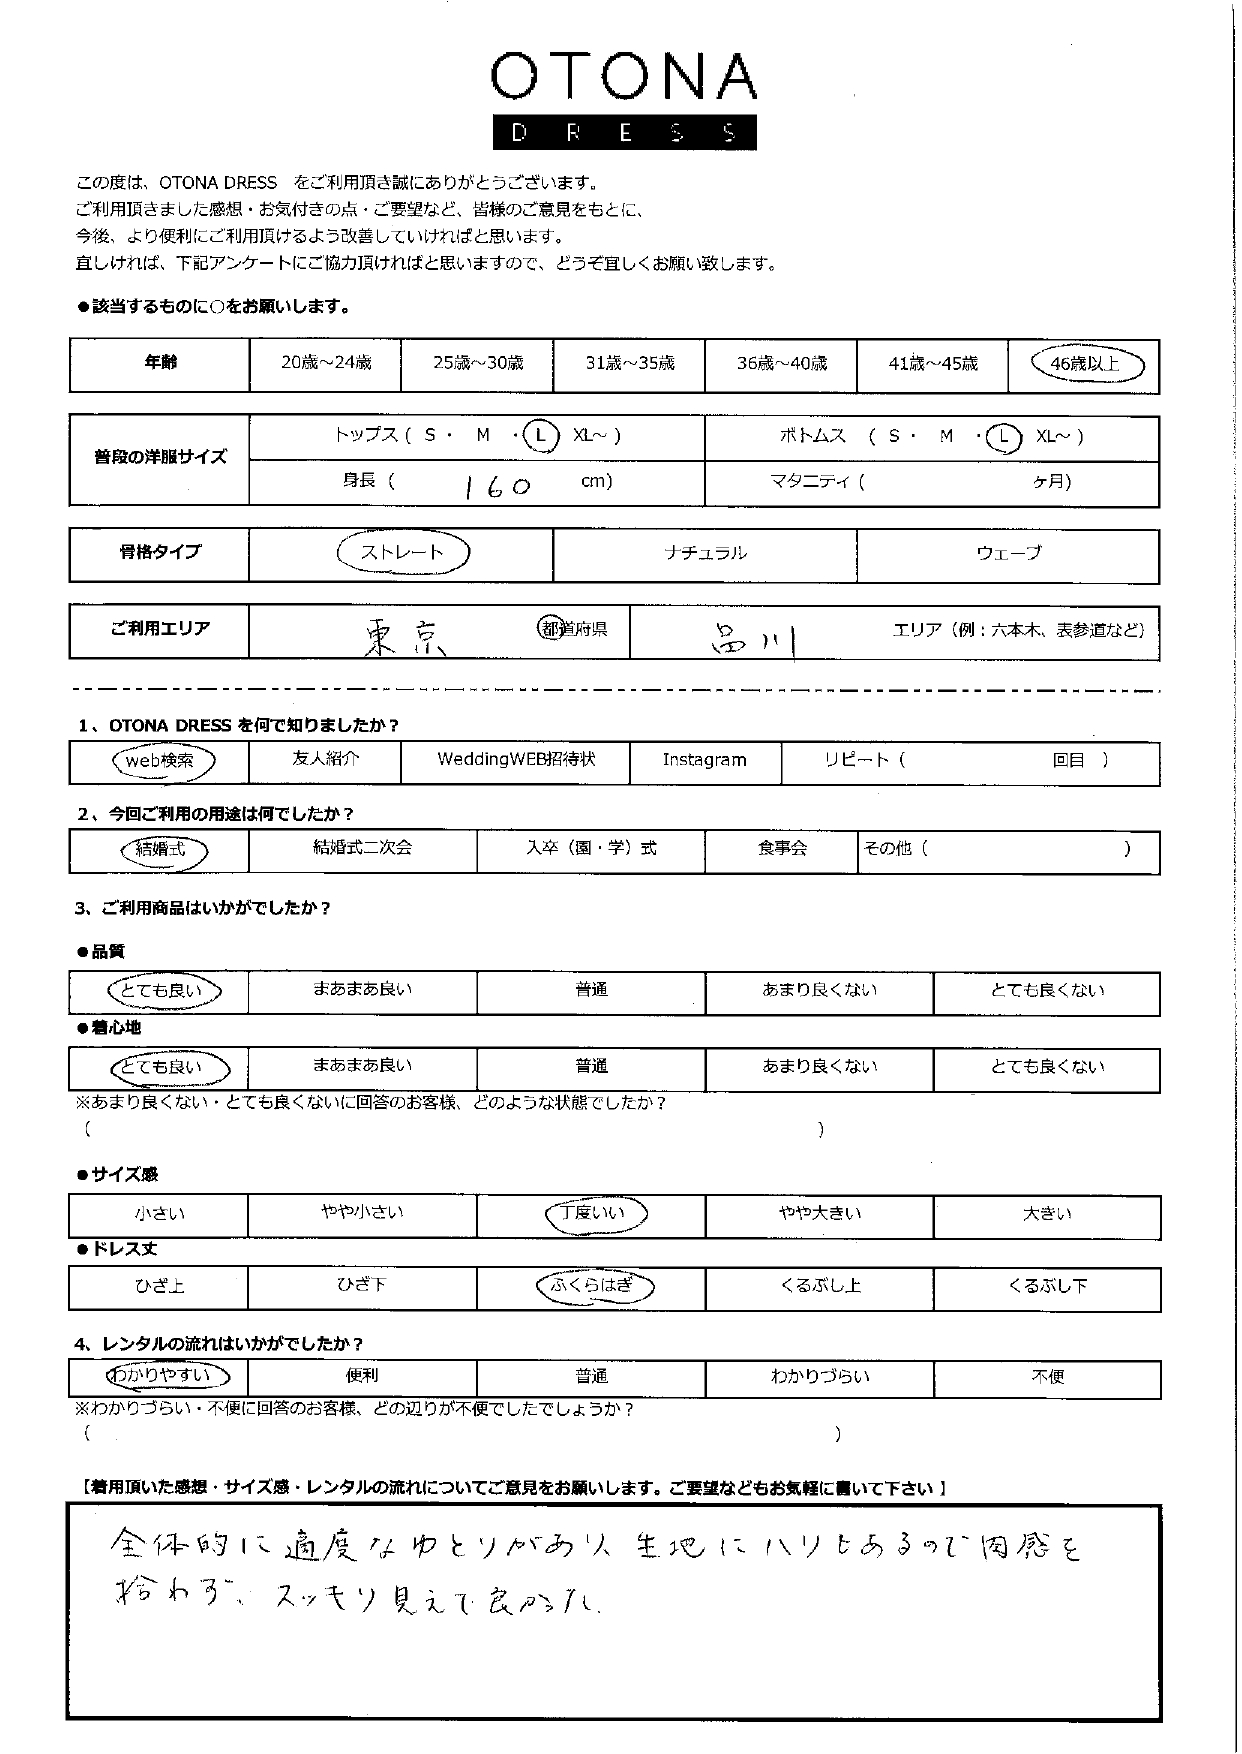 OTONA
DRESS
この度は、OTONA DRESS をご利用頂き誠にありがとうございます。
ご利用頂きました感想・お気付きの点・ご要望など、皆様のご意見をもとに、
今後、より便利にご利用頂けるよう改善していければと思います。
宜しければ、下記アンケートにご協力頂ければと思いますので、どうぞ宜しくお願い致します。
●該当するものに○をお願いします。
年齢 20歳～24歳 25歳～30歳 31歳～35歳 36歳～40歳 41歳～45歳 46歳以上
普段の洋服サイズ トップス ( S ・ M ・ L XL～ ) ボトムス ( S ・ M ・ L XL～ )
身長 ( 160 cm) マタニティ ( ヶ月)
骨格タイプ ストレート ナチュラル ウェーブ
ご利用エリア 東京 都道府県 品川 エリア（例：六本木、表参道など）
1、OTONA DRESS を何で知りましたか？
web検索 友人紹介 WeddingWEB招待状 Instagram リピート ( 回目 )
2、今回ご利用の用途は何でしたか？
結婚式 結婚式二次会 入卒（園・学）式 食事会 その他 ( )
3、ご利用商品はいかがでしたか？
●品質
とても良い まあまあ良い 普通 あまり良くない とても良くない
●着心地
とても良い まあまあ良い 普通 あまり良くない とても良くない
※あまり良くない・とても良くないに回答のお客様、どのような状態でしたか？
( )
●サイズ感
小さい やや小さい 丁度いい やや大きい 大きい
●ドレス丈
ひざ上 ひざ下 ふくらはぎ くるぶし上 くるぶし下
4、レンタルの流れはいかがでしたか？
わかりやすい 便利 普通 わかりづらい 不便
※わかりづらい・不便に回答のお客様、どの辺りが不便でしたでしょうか？
( )
【着用頂いた感想・サイズ感・レンタルの流れについてご意見をお願いします。ご要望などもお気軽に書いて下さい】
全体的に適度なゆとりがあり、生地にハリもあるので肉感を
拾わず、スッキリ見えて良かった。